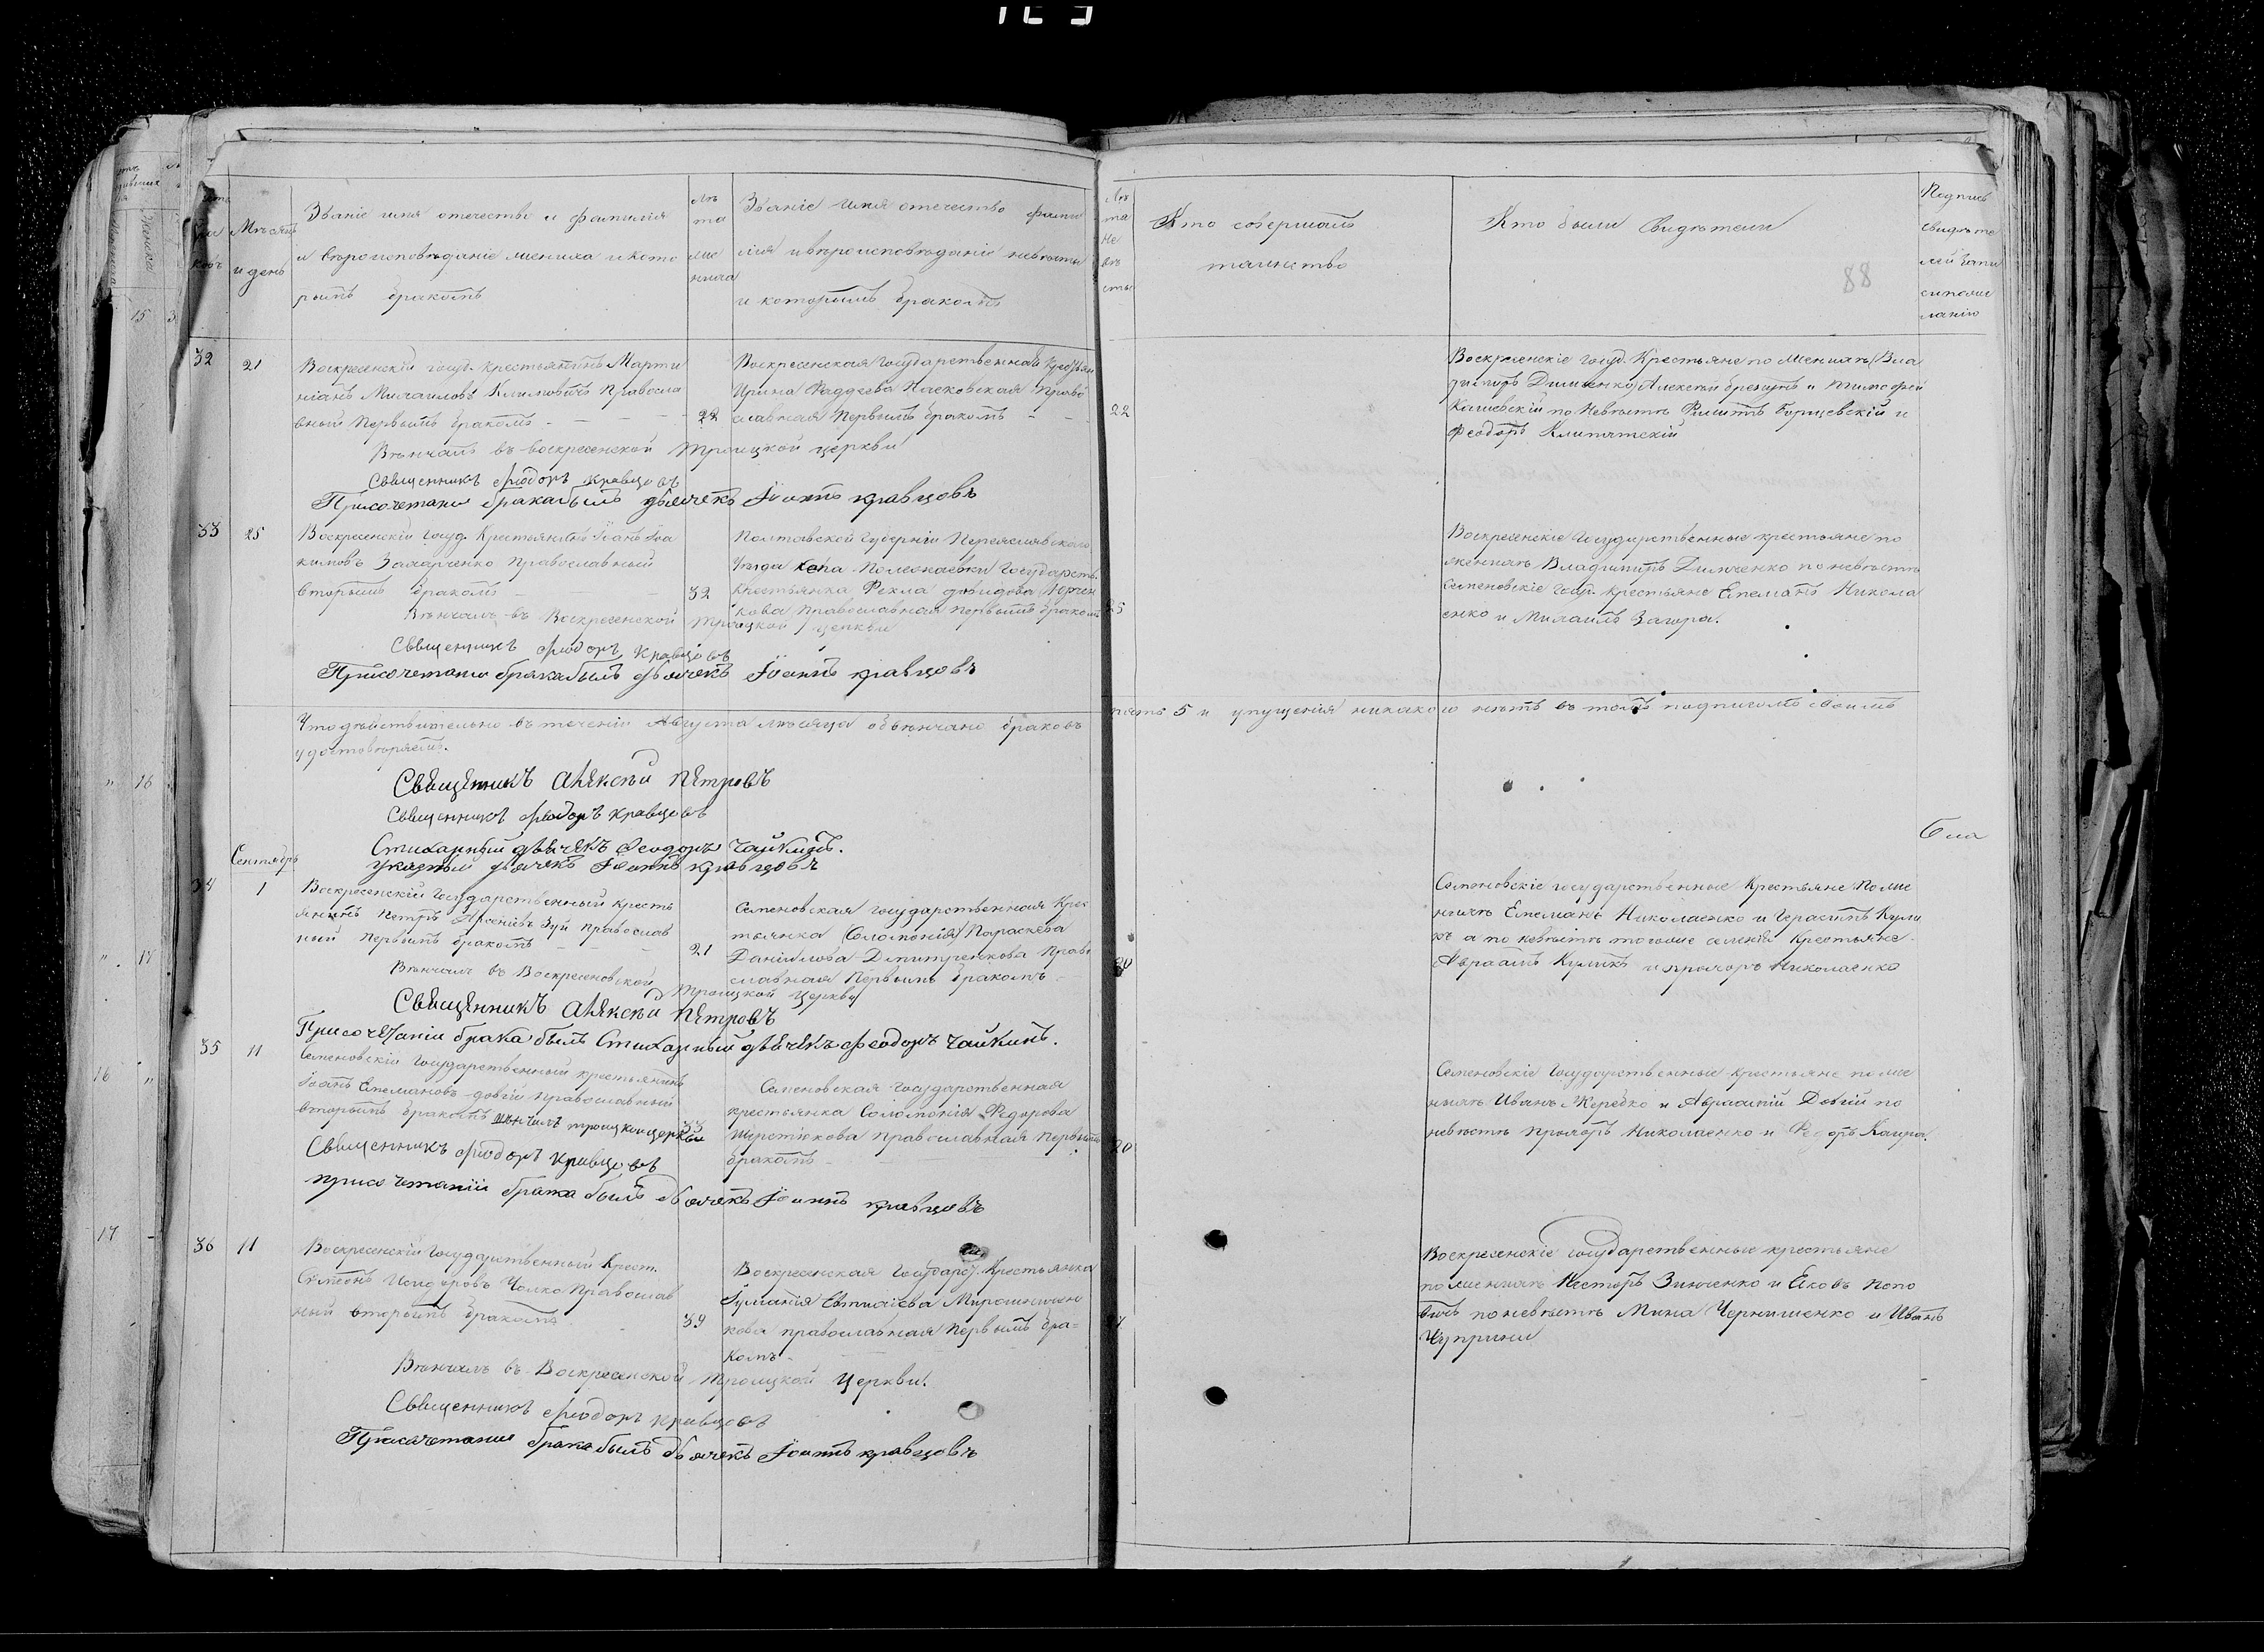 88
Мѣсяцъ и день
Званіе имя отечество и фамилія
и вѣроисповѣданіе жениха и кото
рымъ бракомъ
Лѣ
та
же
ниха
Званіе имя отечество фами
лія и вѣроисповѣданіе невѣсты
и которымъ бракомъ
Лѣ
та
не
вѣ
сты
Кто совершалъ
таинство
Кто были свидѣтели
Подпись
свидѣте
лей
32
21
Воскресенскій госуд. крестьянинъ Марти
ніанъ Михаиловъ Климовичъ Правосла
вный Первымъ бракомъ
22
Воскресенская Государственная
Ирина Фаддеева Насковская Право
славная Первымъ бракомъ
22
Воскресенскіе госуд. Крестьяне по женихѣ Вла
димиръ Димченко Алексѣй и Тимофей
по Невѣстѣ Филипъ Борщевскій и
Феодоръ
Вѣнчалъ въ воскресенской Троицкой церкви
Священникъ Феодоръ Кравцовъ
При сочетании брака былъ дьячекъ Іоаннъ Кравцовъ
33
25
Воскресенскій госуд. Крестьянинъ Іоанъ Іоа
кимовъ Захарченко Православный
вторымъ бракомъ
32
Полтавской Губерніи Переяславского
Уѣзда Государств.
крестьянка Фекла
кова Православная первымъ бракомъ
25
Воскресенскіе Государственные крестьяне по
женихѣ Владимиръ Димченко по невѣстѣ
Семеновскіе госуд. крестьяне Емеланъ Никола
енко и Михаилъ Загора.
Вѣнчалъ въ Воскресенской Троицкой церкви
Священникъ Феодоръ Кравцовъ
При сочетании брака былъ дьячекъ Іоаннъ Кравцовъ
Что дѣйствительно въ теченіи Августа мѣсяца обвѣнчано браковъ
пять 5 и упущенія никакого нѣтъ въ томъ подписомъ своимъ
удостовѣряемъ.
Священникъ Алексѣй Петровъ
Священникъ Феодоръ Кравцовъ
Стихарный дьячекъ Феодоръ Чайкинъ.
Указный дьячекъ Іоаннъ Кравцовъ
Сентябрь
34
1
Воскресенскій Государственный кресть
янинъ Петръ Арсеніевъ Зуй православ
ный первымъ бракомъ
21
Семеновская государственная Крес
тьянка (Соломонія) Параскева
Даніилова Дмитренкова Право
славная Первымъ бракомъ
20
Семеновскіе государственные Крестьяне По же
нихѣ Емеланъ Николаенко и Герасимъ Кули
къ а по невѣстѣ того же селенія Крестьяне
Авраамъ Куликъ и Прохоръ Николаенко
Вѣнчалъ въ Воскресеновской Троицкой церкви
Священникъ Алексѣй Петровъ
При сочетаніи брака былъ Стихарный дьячекъ Феодоръ Чайкинъ.
35
11
Семеновскій Государственный крестьянинъ
Іоанъ Емелановъ Довгій православный
вторымъ бракомъ вѣнчалъ троицкой церкви
33
Семеновская государственная
крестьянка Соломонія Федорова
Шерстюкова православная первымъ
бракомъ
20
Семеновскіе Государственные крестьяне по же
нихѣ Иванъ Жеребко и Довгій по
невѣстѣ Прохоръ Николаенко и Федоръ Каира.
Священникъ Феодоръ Кравцовъ
При сочетаніи брака былъ дьячекъ Іоаннъ Кравцовъ
36
11
Воскресенскій Государственный Крест.
Симеонъ Исидоровъ Чалко Православ
ный вторымъ бракомъ
39
Воскресенская Государ. Крестьянка
Евтихіева Мирошничен
кова православная первымъ бра-
комъ
Воскресенскіе государственные крестьяне
по женихѣ Несторъ Зинченко и Яковъ Попо
вичъ по невѣстѣ Мина Чернишенко и Иванъ
Чуприни
Вѣнчалъ въ Воскресенской Троицкой Церкви.
Священникъ Феодоръ Кравцовъ
При сочетании брака былъ дьячекъ Іоаннъ Кравцовъ